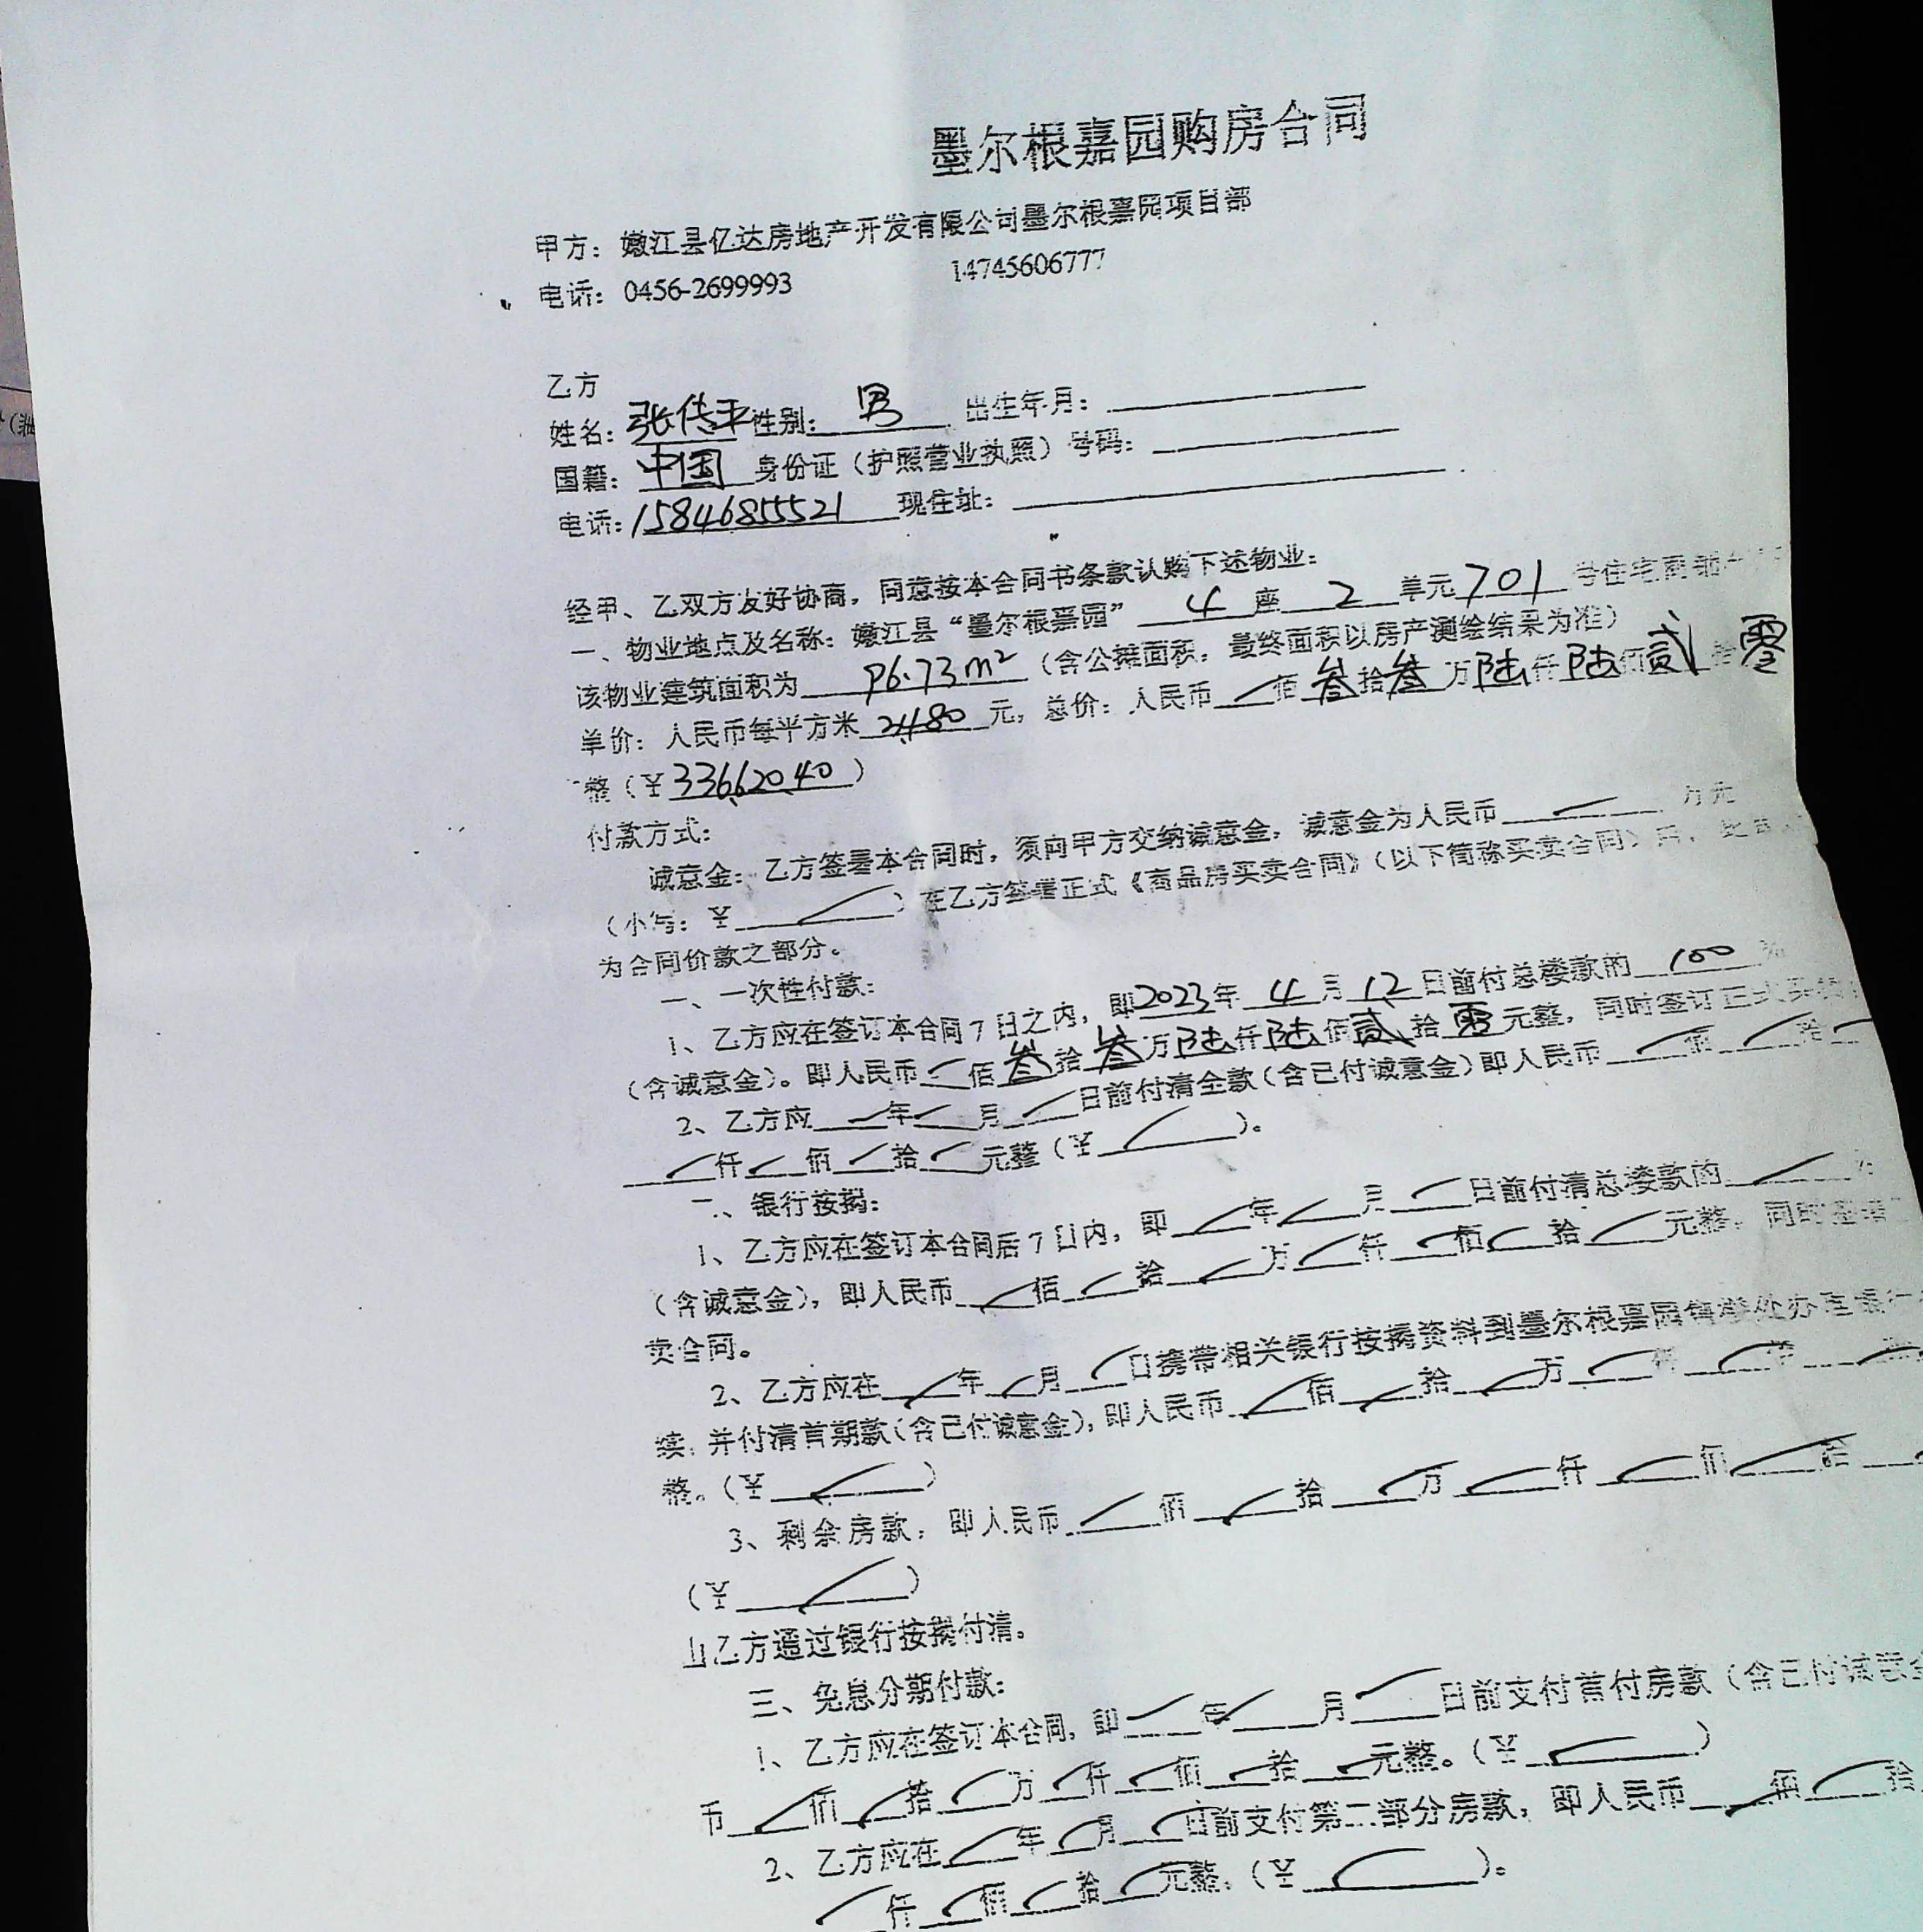 墨尔根嘉园购房合同
甲方：嫩江县亿达房地产开发有限公司墨尔根嘉园项目部
电话：0456-2699993 14745606777
乙方
姓名：张传平性别：男 出生年月：
国籍：中国 身份证（护照营业执照）号码：
电话：15846855521 现住址：
经甲、乙双方友好协商，同意按本合同书条款认购下述物业：
一、物业地点及名称：嫩江县“墨尔根嘉园” 4 座 2 单元 701 号住宅
该物业建筑面积为 96.73m² （含公摊面积，最终面积以房产测绘结果为准）
单价：人民币每平方米 2480 元，总价：人民币 佰叁拾叁万陆仟陆佰贰拾零
整（¥336620.40）
付款方式：
诚意金：乙方签署本合同时，须向甲方交纳诚意金，诚意金为人民币 万元
（小写：¥ ）在乙方签署正式《商品房买卖合同》（以下简称买卖合同）后，
为合同价款之部分。
一、一次性付款：
1、乙方应在签订本合同7日之内，即2023年 4 月 12 日前付总楼款的 100 %
（含诚意金）。即人民币 佰叁拾叁万陆仟陆佰贰拾零元整，同时签订正式买
2、乙方应 年 月 日前付清全款（含已付诚意金）即人民币 佰 拾
仟 佰 拾 元整（¥ ）。
二、银行按揭：
1、乙方应在签订本合同后7日内，即 年 月 日前付清总楼款的
（含诚意金），即人民币 佰 拾 万 仟 佰 拾 元整，同时签署
卖合同。
2、乙方应在 年 月 日携带相关银行按揭资料到墨尔根嘉园销售处办理银行
续，并付清首期款（含已付诚意金），即人民币 佰 拾 万 仟 佰
整。（¥ ）
3、剩余房款，即人民币 佰 拾 万 仟 佰 拾
（¥ ）
由乙方通过银行按揭付清。
三、免息分期付款：
1、乙方应在签订本合同，即 年 月 日前支付首付房款（含已付诚意金
币 佰 拾 万 仟 佰 拾 元整。（¥ ）
2、乙方应在 年 月 日前支付第二部分房款，即人民币 佰 拾
仟 佰 拾 元整，（¥ ）。